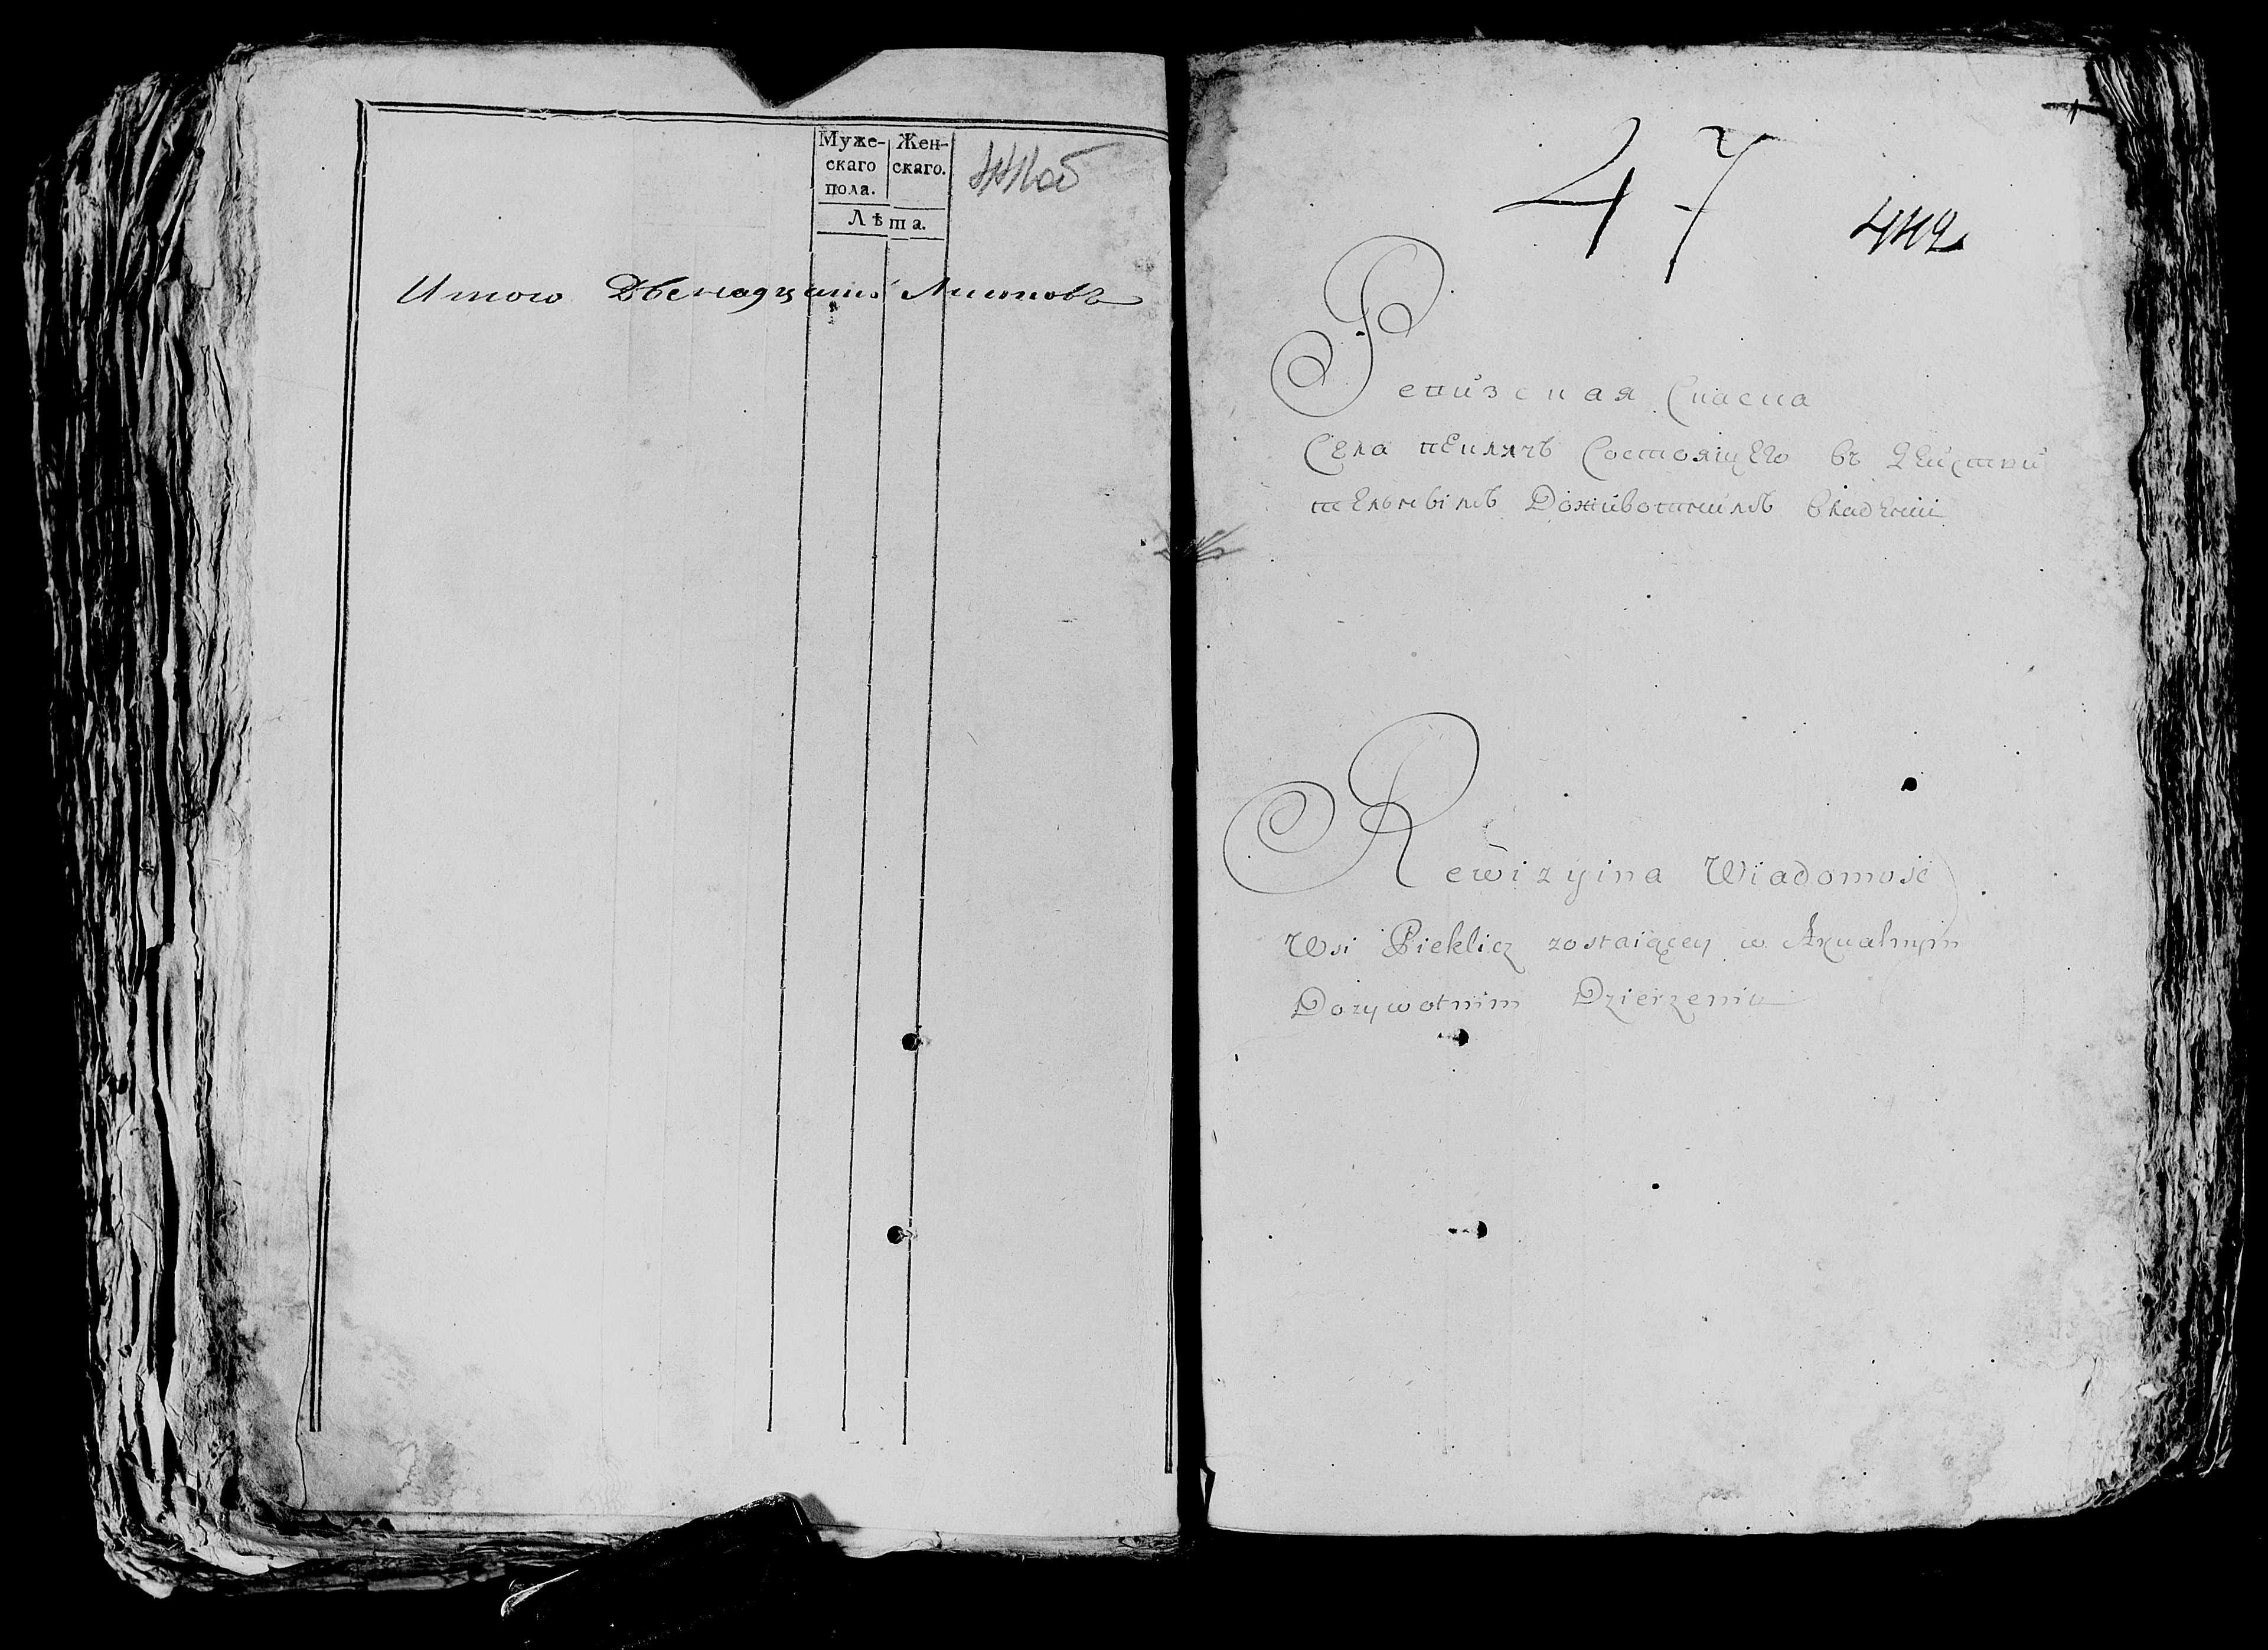 Муже-
скаго
пола.
Жен-
скаго.
Лѣта.
441об
Итого Двенадцать Листовъ
47
442
Ревизская Сказка
Села пекличъ Состоящего въ Действи
тельнымъ Доживотнимъ Владении
Rewizyina Wiadomość
Wsi Pieklicz zostaiącey w Akualnym
Dozywotnim Dzierzeniu